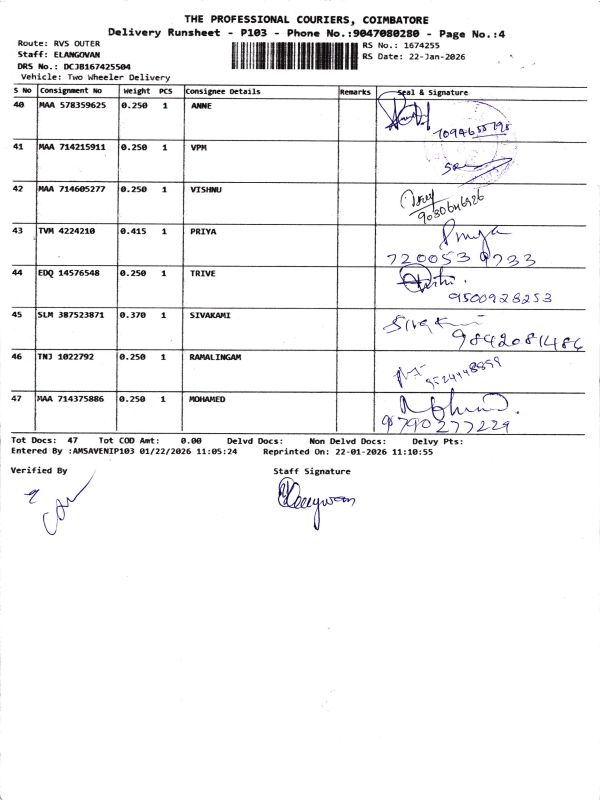 THE PROFESSIONAL COURIERS, COIMBATORE
Delivery Runsheet - P103 - Phone No.:9047080280 - Page No.:4
Route: RVS OUTER
RS No.: 1674255
Staff: ELANGOVAN
RS Date: 22-Jan-2026
DRS No.: DCJB167425504
Vehicle: Two Wheeler Delivery
S No Consignment No Weight PCS Consignee Details Remarks Seal & Signature
40 MAA 578359625 0.250 1 ANNE
41 MAA 714215911 0.250 1 VPM
42 MAA 714605277 0.250 1 VISHNU
43 TVM 4224210 0.415 1 PRIYA
Priya
7200539733
44 EDQ 14576548 0.250 1 TRIVE
9500928253
45 SLM 387523871 0.370 1 SIVAKAMI
9842081486
46 TNJ 1022792 0.250 1 RAMALINGAM
47 MAA 714375886 0.250 1 MOHAMED
9790277229
Tot Docs: 47 Tot COD Amt: 0.00 Delvd Docs: Non Delvd Docs: Delvy Pts:
Entered By :AMSAVENIP103 01/22/2026 11:05:24 Reprinted On: 22-01-2026 11:10:55
Verified By Staff Signature